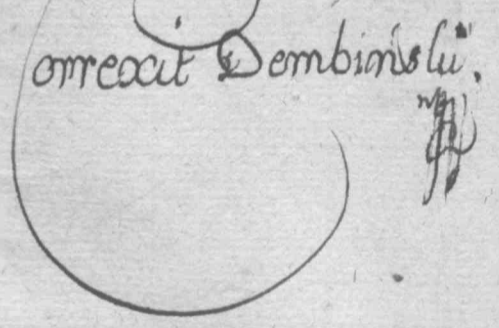 Correxit Dembinski
mpp